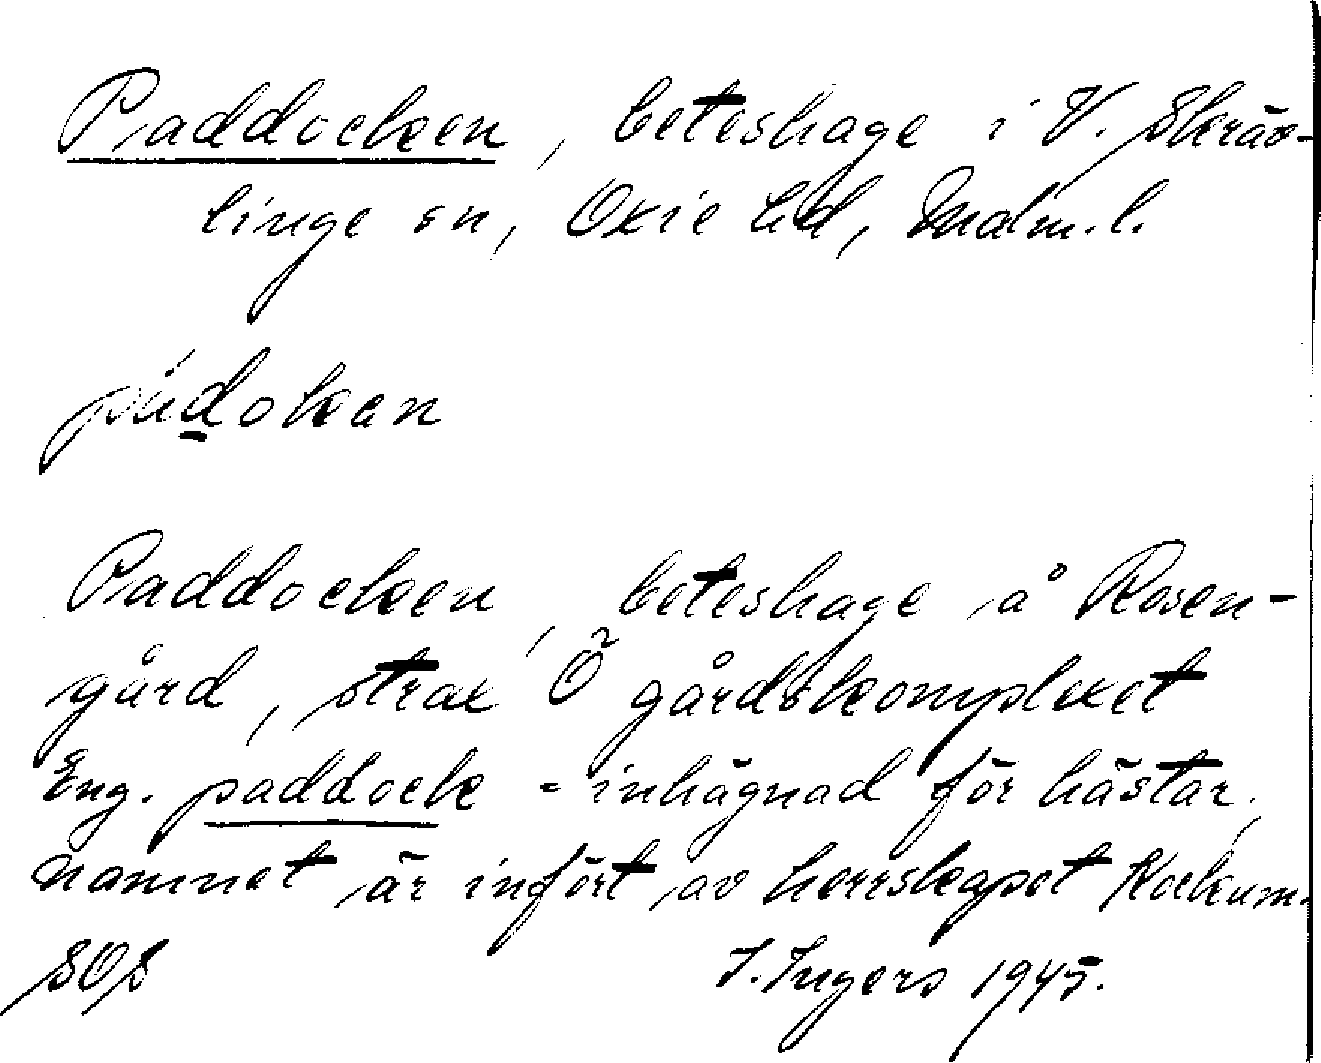 Paddocken, beteshage i V. Skräv-
linge sn, Oxie hd, Malm.l.
Paddocken, beteshage å Rosen-
gård, strax Ö gårdskomplexet
Eng. paddock = inhägnad för hästar,
namnet är infört av herrskapet Kockum.
SOS I. Ingers 1945.